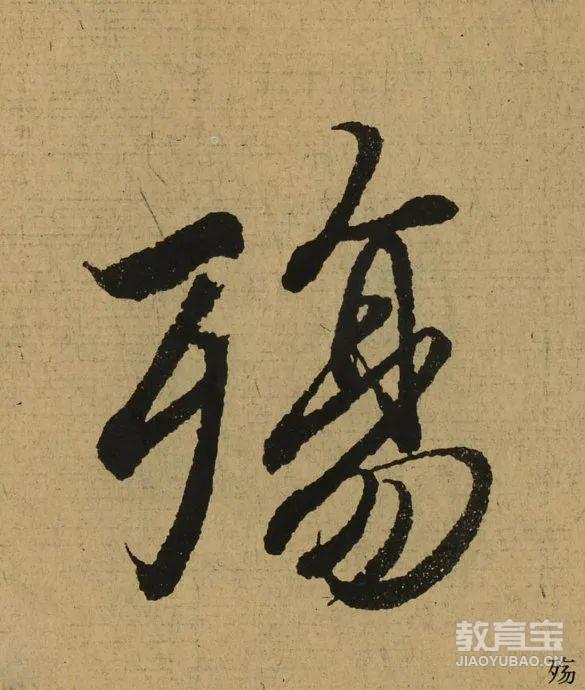 殇
教育宝
JIAOYUBAO.CN
殇